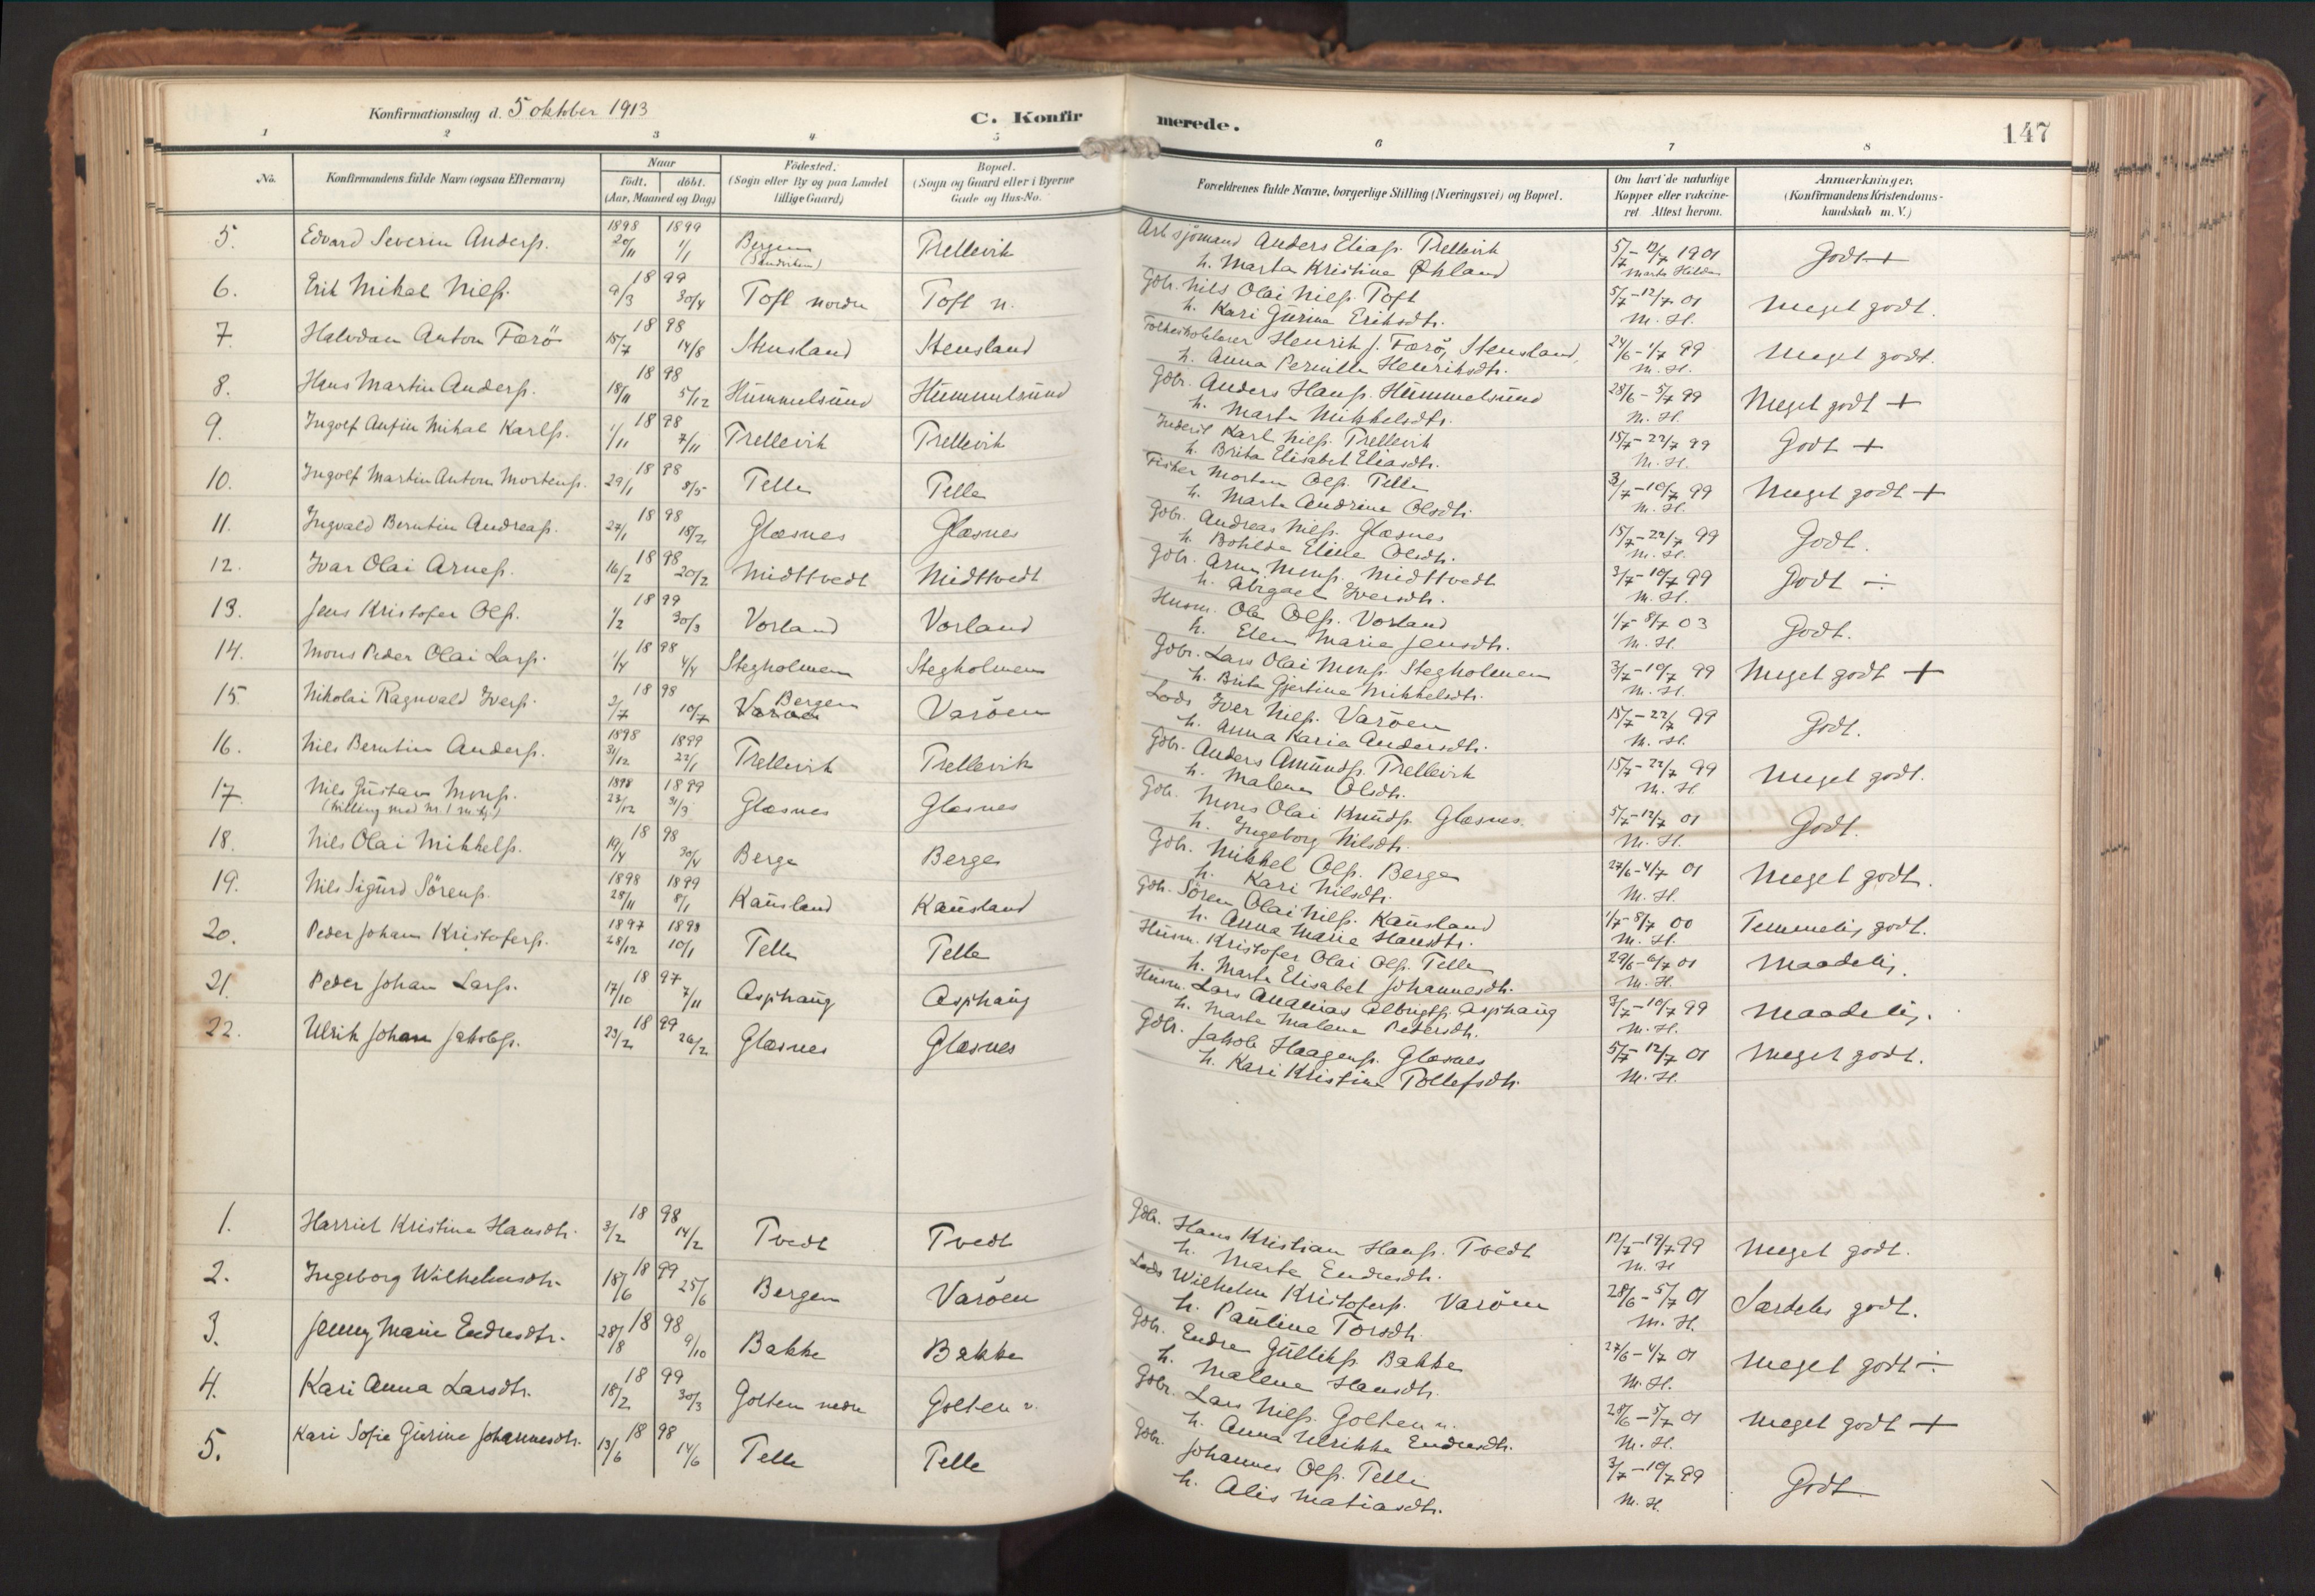 Konfirmationsdag d. 5 oktober 1913
C. Konfirmerede.
147
1 2 3 4 5 6 7 8
No.
Konfirmandens fulde Navn (ogsaa Efternavn)
Naar
født. døbt.
(Aar, Maaned og Dag)
Fødested.
(Sogn eller By og paa Landet tillige Gaard)
Bopæl.
(Sogn og Gaard eller i Byerne Gade og Hus-No.
Forældrenes fulde Navne, borgerlige Stilling (Næringsvei) og Bopæl.
Om havt de naturlige Kopper eller vakcineret. Attest herom.
Anmærkninger.
(Konfirmandens Kristendomskundskab m. V.)
5. Edvard Severin Anderss. 1898 20/11 1899 1/1 Bergen (Sandviken) Trellevik Arb sjömand Anders Eliass. Trellevik 5/7-12/7 1901 Godt +
h. Marta Kristine Økland
6. Erik Mikal Nilss. 1899 9/3 30/4 Toft nordre Toft n. Gbr. Nils Olai Nilss. Toft 5/7-12/7 01 Meget godt.
h. Kari Gurine Eriksdtr. M. H.
7. Halvdan Anton Færö 1898 15/7 14/8 Stensland Stensland Folkeskolelærer Henrik J. Færö, Stensland, 24/6-1/7 99 Meget godt.
h. Anna Pernille Henriksdtr. M. H.
8. Hans Martin Anderss. 1898 18/11 5/12 Hummelsund Hummelsund Gbr. Anders Hanss. Hummelsund 28/6-5/7 99 Meget godt +
h. Marta Mikkelsdtr. M. H.
9. Ingolf Anfin Mikal Karlss. 1898 1/11 7/11 Trellevik Trellevik Inderst Karl Nilss. Trellevik 15/7-22/7 99 Godt +
h. Brita Elisabet Eliasdtr. M. H.
10. Ingolf Martin Anton Mortenss. 1898 29/1 8/5 Telle Telle Fisker Morten Olss. Telle 3/7-10/7 99 Meget godt +
h. Marta Andrine Olsdtr. M. H.
11. Ingvald Berntin Andreass. 1898 27/1 18/2 Glæsnes Glæsnes Gbr. Andreas Nilss. Glæsnes 15/7-22/7 99 Godt.
h. Bothilda Eline Olsdtr. M. H.
12. Ivar Olai Arness. 1898 16/2 20/2 Midttvedt Midttvedt Gbr. Arne Monss. Midttvedt 3/7-10/7 99 Godt ÷
h. Abigael Iversdtr. M. H.
13. Jens Kristofer Olss. 1899 1/2 30/3 Vorland Vorland Husm. Ole Olss. Vorland 1/7-8/7 03 Godt.
h. Elen Marie Jensdtr. M. H.
14. Mons Peder Olai Larss. 1898 1/4 4/4 Stegholmen Stegholmen Gbr. Lars Olai Monss. Stegholmen 3/7-10/7 99 Meget godt +
h. Brita Gjertine Mikkelsdtr. M. H.
15. Nikolai Ragnvald Iverss. 1898 2/7 10/7 Bergen Varöen Varöen Lods Iver Nilss. Varöen 15/7-22/7 99 Godt.
h. Anna Karia Andersdtr. M. H.
16. Nils Berntin Anderss. 1898 31/12 1899 22/1 Trellevik Trellevik Gbr. Anders Amundss. Trellevik 15/7-22/7 99 Meget godt.
h. Malena Olsdtr. M. H.
17. Nils Gustav Monss. 1898 23/12 1899 31/3 Glæsnes Glæsnes Gbr. Mons Olai Knudss. Glæsnes. 5/7-12/7 01 Godt.
h. Ingeborg Nilsdtr. M. H.
18. Nils Olai Mikkelss. 1898 19/4 30/4 Berge Berge Gbr. Mikkel Olss. Berge 27/6-4/7 01 Meget godt.
h. Kari Nilsdtr. M. H.
19. Nils Sigurd Sörenss. 1898 28/11 1899 8/1 Kausland Kausland Gbr. Sören Olai Nilss. Kausland 1/7-8/7 00 Temmelig godt.
h. Anna Marie Hansdtr. M. H.
20. Peder Johan Kristoferss. 1897 28/12 1898 10/1 Telle Telle Husm. Kristofer Olai Olss. Telle 29/6-6/7 01 Maadelig.
h. Marta Elisabet Johannesdtr. M. H.
21. Peder Johan Larss. 1897 17/10 7/11 Asphaug Asphaug Husm. Lars Ananias Albrigts. Asphaug 3/7-10/7 99 Maadelig.
h. Marta Malene Pedersdtr. M. H.
22. Ulrik Johan Jakobss. 1899 23/2 26/2 Glæsnes Glæsnes Gbr. Jakob Haagenss. Glæsnes 5/7-12/7 01 Meget godt.
h. Kari Kristine Tollefsdtr. M. H.
1. Harriet Kristine Hansdtr. 1898 3/2 14/2 Tvedt Tvedt Gbr. Hans Kristian Hanss. Tvedt 12/7-19/7 99 Meget godt.
h. Marta Endresdtr. M. H
2. Ingeborg Wilhelmsdtr. 1899 18/6 25/6 Bergen Varöen Lods Wilhelm Kristoferss. Varöen 28/6-5/7 01 Særdeles godt.
h. Pauline Torsdtr. M. H.
3. Jenny Marie Endresdtr. 1898 28/8 9/10 Bakke Bakke Gbr. Endre Gullikss. Bakke 27/6-4/7 01 Meget godt ÷
h. Malene Hansdtr. M. H.
4. Kari Anna Larsdtr. 1899 18/2 30/3 Golten nedre Golten n. Gbr. Lars Nilss. Golten n. 28/6-5/7 01 Meget godt +
h. Anna Ulrikka Endresdtr. M. H.
5. Kari Sofie Gurine Johannesdtr. 1898 13/6 14/6 Telle Telle Gbr. Johannes Olss. Telle 3/7-10/7 99 Godt
h. Alis Matiasdtr. M. H.